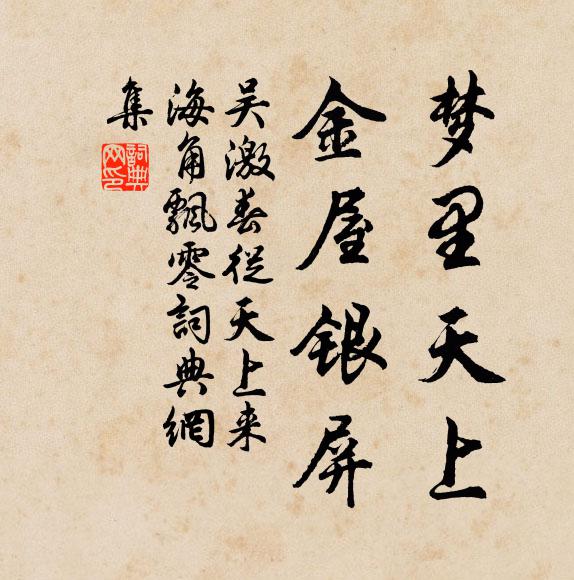 梦里天上
金屋银屏
吴激春从天上来
海角飘零词典網
集
詞典
网印